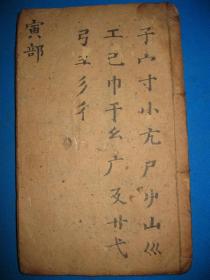 子宀寸小尢尸屮山巛
工己巾干幺广廴廾弋
弓彑彡彳
寅部